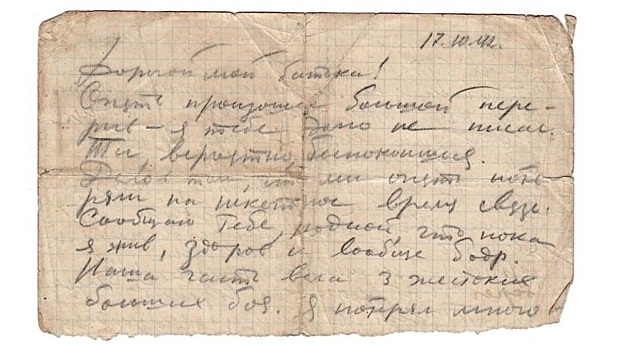 17.10.42.
Дорогой мой батька!
Опять произошел большой пере-
рыв – я тебе долго не писал.
Ты, вероятно, беспокоишься.
Дело в том, что мы опять поте-
ряли на некоторое время связь.
Сообщаю тебе, родной, что пока
я жив, здоров и вообще бодр.
Наша часть вела 3 жестоких
больших боя. Я потерял много